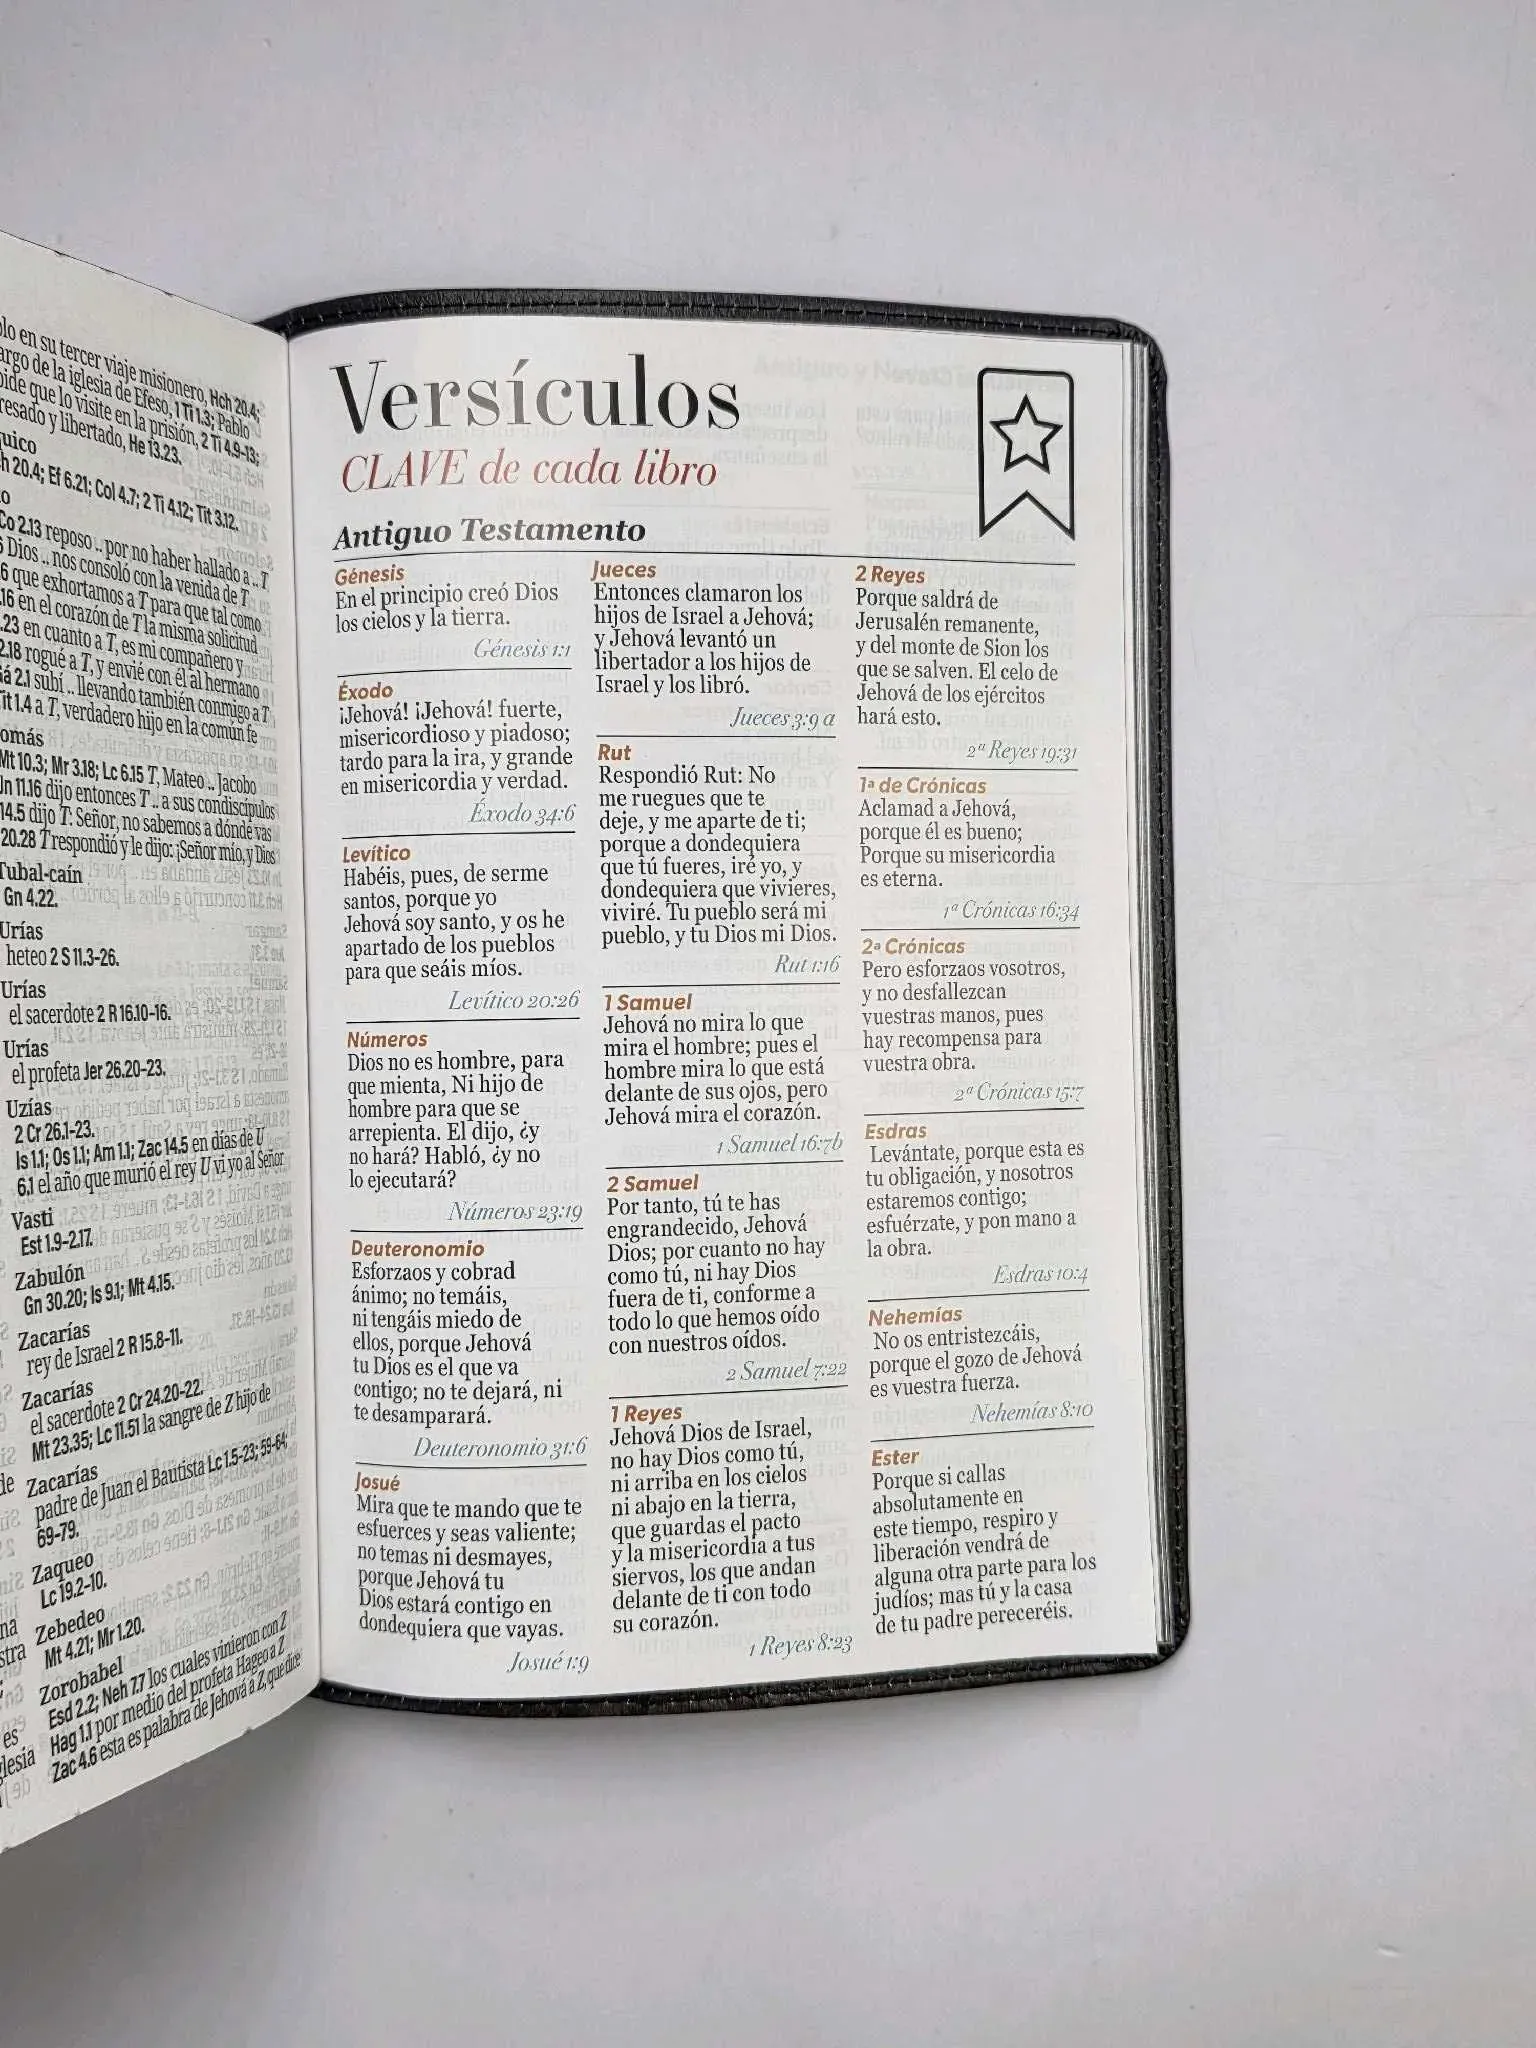 en su tercer viaje misionero, Hch 20.4;
argo de la iglesia de Efeso, 1 Ti 1.3; Pablo
pide que lo visite en la prisión, 2 Ti 4.9-13;
resado y libertado, He 13.23.
20.4; Ef 6.21; Col 4.7; 2 Ti 4.12; Tit 3.12.
Co 2.13 reposo .. por no haber hallado a .. T
Dios .. nos consoló con la venida de T
que exhortamos a T para que tal como
16 en el corazón de T la misma solicitud
23 en cuanto a T, es mi compañero y
2.18 rogué a T, y envié con él al hermano
2.1 subí .. llevando también conmigo a T
Tit 1.4 a T, verdadero hijo en la común fe
omás
Mt 10.3; Mr 3.18; Lc 6.15 T, Mateo .. Jacobo
Jn 11.16 dijo entonces T .. a sus condiscípulos
14.5 dijo T: Señor, no sabemos a dónde vas
20.28 T respondió y le dijo: ¡Señor mío, y Dios
Tubal-caín
Gn 4.22.
Urías
heteo 2 S 11.3-26.
Urías
el sacerdote 2 R 16.10-16.
Urías
el profeta Jer 26.20-23.
Uzías
2 Cr 26.1-23.
Is 1.1; Os 1.1; Am 1.1; Zac 14.5 en días de U
6.1 el año que murió el rey U vi yo al Señor
Vasti
Est 1.9-2.17.
Zabulón
Gn 30.20; Is 9.1; Mt 4.15.
Zacarías
rey de Israel 2 R 15.8-11.
Zacarías
el sacerdote 2 Cr 24.20-22.
Mt 23.35; Lc 11.51 la sangre de Z hijo de
Zacarías
padre de Juan el Bautista Lc 1.5-23; 59-64;
69-79.
Zaqueo
Lc 19.2-10.
Zebedeo
Mt 4.21; Mr 1.20.
Zorobabel
Esd 2.2; Neh 7.7 los cuales vinieron con Z
Hag 1.1 por medio del profeta Hageo a Z
Zac 4.6 esta es palabra de Jehová a Z, que dice
Versículos
CLAVE de cada libro
Antiguo Testamento
Génesis
En el principio creó Dios
los cielos y la tierra.
Génesis 1:1
Éxodo
¡Jehová! ¡Jehová! fuerte,
misericordioso y piadoso;
tardo para la ira, y grande
en misericordia y verdad.
Éxodo 34:6
Levítico
Habéis, pues, de serme
santos, porque yo
Jehová soy santo, y os he
apartado de los pueblos
para que seáis míos.
Levítico 20:26
Números
Dios no es hombre, para
que mienta, Ni hijo de
hombre para que se
arrepienta. El dijo, ¿y
no hará? Habló, ¿y no
lo ejecutará?
Números 23:19
Deuteronomio
Esforzaos y cobrad
ánimo; no temáis,
ni tengáis miedo de
ellos, porque Jehová
tu Dios es el que va
contigo; no te dejará, ni
te desamparará.
Deuteronomio 31:6
Josué
Mira que te mando que te
esfuerces y seas valiente;
no temas ni desmayes,
porque Jehová tu
Dios estará contigo en
dondequiera que vayas.
Josué 1:9
Jueces
Entonces clamaron los
hijos de Israel a Jehová;
y Jehová levantó un
libertador a los hijos de
Israel y los libró.
Jueces 3:9 a
Rut
Respondió Rut: No
me ruegues que te
deje, y me aparte de ti;
porque a dondequiera
que tú fueres, iré yo, y
dondequiera que vivieres,
viviré. Tu pueblo será mi
pueblo, y tu Dios mi Dios.
Rut 1:16
1 Samuel
Jehová no mira lo que
mira el hombre; pues el
hombre mira lo que está
delante de sus ojos, pero
Jehová mira el corazón.
1 Samuel 16:7b
2 Samuel
Por tanto, tú te has
engrandecido, Jehová
Dios; por cuanto no hay
como tú, ni hay Dios
fuera de ti, conforme a
todo lo que hemos oído
con nuestros oídos.
2 Samuel 7:22
1 Reyes
Jehová Dios de Israel,
no hay Dios como tú,
ni arriba en los cielos
ni abajo en la tierra,
que guardas el pacto
y la misericordia a tus
siervos, los que andan
delante de ti con todo
su corazón.
1 Reyes 8:23
2 Reyes
Porque saldrá de
Jerusalén remanente,
y del monte de Sion los
que se salven. El celo de
Jehová de los ejércitos
hará esto.
2ª Reyes 19:31
1ª de Crónicas
Aclamad a Jehová,
porque él es bueno;
Porque su misericordia
es eterna.
1ª Crónicas 16:34
2ª Crónicas
Pero esforzaos vosotros,
y no desfallezcan
vuestras manos, pues
hay recompensa para
vuestra obra.
2ª Crónicas 15:7
Esdras
Levántate, porque esta es
tu obligación, y nosotros
estaremos contigo;
esfuérzate, y pon mano a
la obra.
Esdras 10:4
Nehemías
No os entristezcáis,
porque el gozo de Jehová
es vuestra fuerza.
Nehemías 8:10
Ester
Porque si callas
absolutamente en
este tiempo, respiro y
liberación vendrá de
alguna otra parte para los
judíos; mas tú y la casa
de tu padre pereceréis.